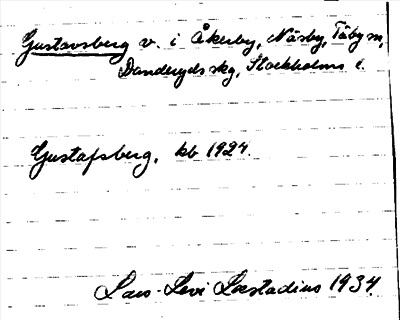 Gustavsberg v. i Åkerby, Näsby, Täby sn,
Danderyds skg, Stockholms l.
Gustafsberg, kb 1924.
Lars-Levi Læstadius 1934